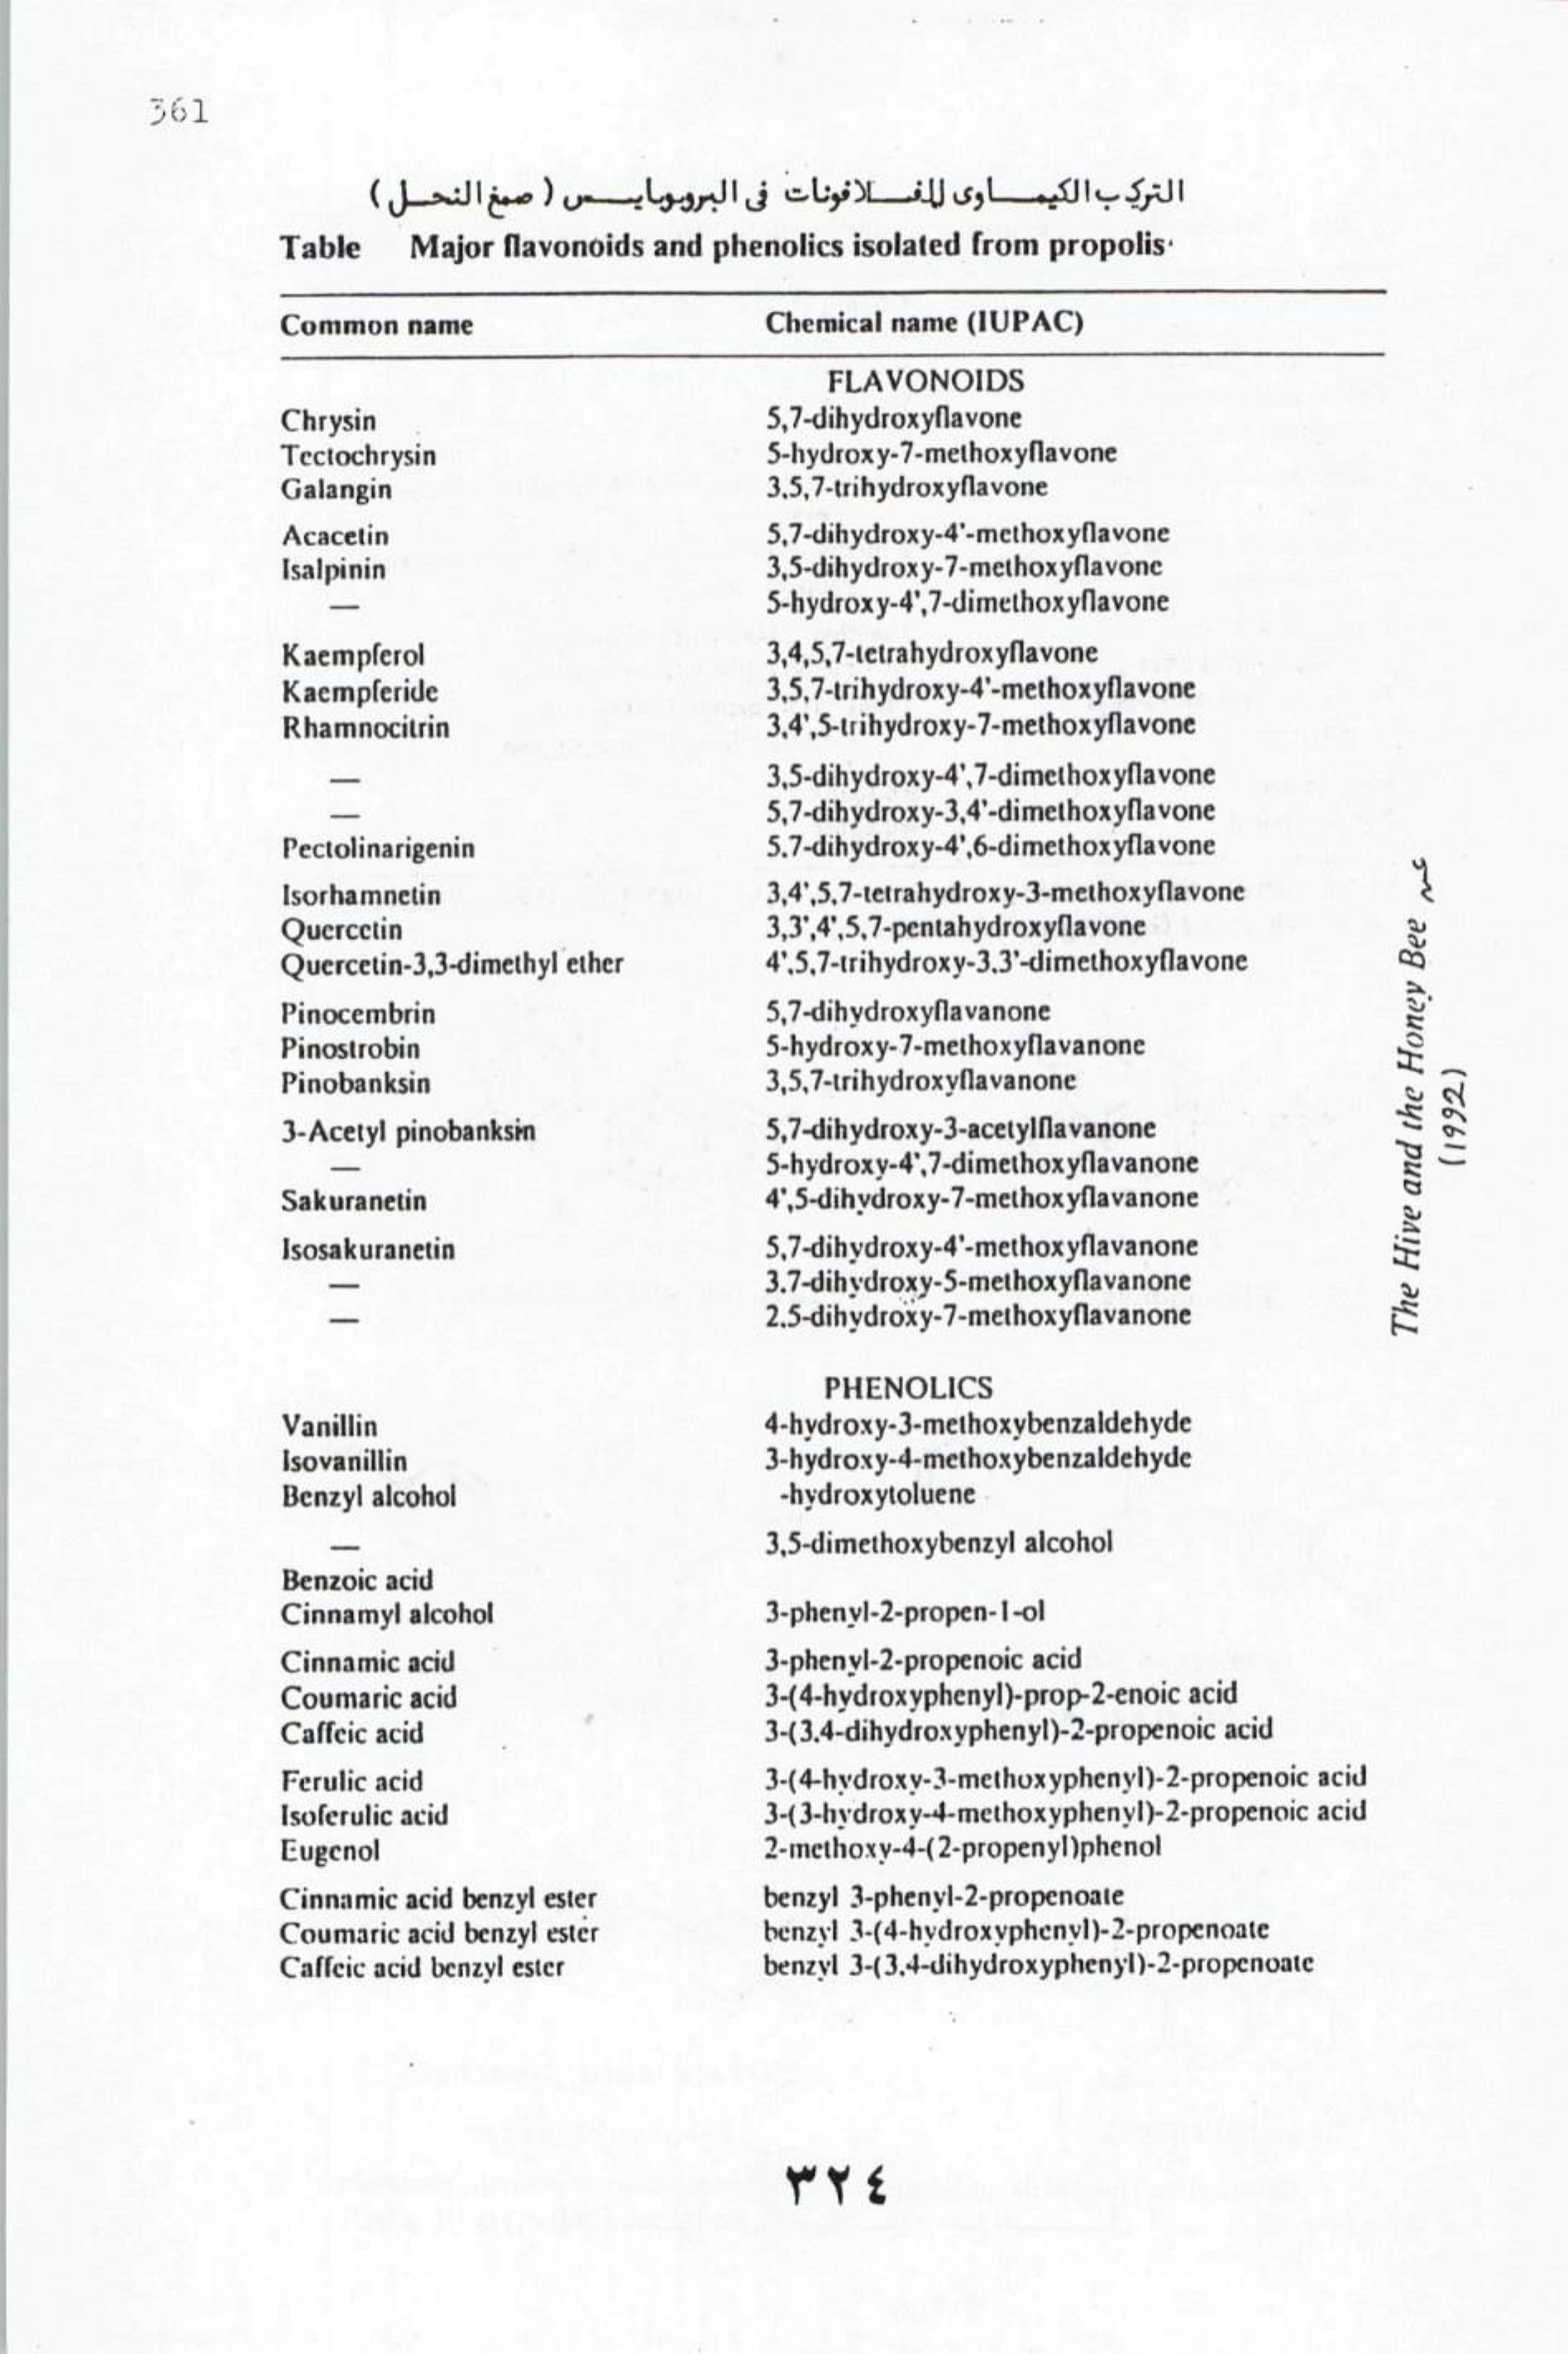 361
التركيب الكيمـاوى للفـلافونات فى البروبوليـس ( صمغ النحـل )
Table Major flavonoids and phenolics isolated from propolis
Common name Chemical name (IUPAC)
FLAVONOIDS
Chrysin 5,7-dihydroxyflavone
Tectochrysin 5-hydroxy-7-methoxyflavone
Galangin 3,5,7-trihydroxyflavone
Acacetin 5,7-dihydroxy-4'-methoxyflavone
Isalpinin 3,5-dihydroxy-7-methoxyflavone
— 5-hydroxy-4',7-dimethoxyflavone
Kaempferol 3,4,5,7-tetrahydroxyflavone
Kaempferide 3,5,7-trihydroxy-4'-methoxyflavone
Rhamnocitrin 3,4',5-trihydroxy-7-methoxyflavone
— 3,5-dihydroxy-4',7-dimethoxyflavone
— 5,7-dihydroxy-3,4'-dimethoxyflavone
Pectolinarigenin 5,7-dihydroxy-4',6-dimethoxyflavone
Isorhamnetin 3,4',5,7-tetrahydroxy-3-methoxyflavone
Quercetin 3,3',4',5,7-pentahydroxyflavone
Quercetin-3,3-dimethyl ether 4',5,7-trihydroxy-3,3'-dimethoxyflavone
Pinocembrin 5,7-dihydroxyflavanone
Pinostrobin 5-hydroxy-7-methoxyflavanone
Pinobanksin 3,5,7-trihydroxyflavanone
3-Acetyl pinobanksin 5,7-dihydroxy-3-acetylflavanone
— 5-hydroxy-4',7-dimethoxyflavanone
Sakuranetin 4',5-dihydroxy-7-methoxyflavanone
Isosakuranetin 5,7-dihydroxy-4'-methoxyflavanone
— 3,7-dihydroxy-5-methoxyflavanone
— 2,5-dihydroxy-7-methoxyflavanone
PHENOLICS
Vanillin 4-hydroxy-3-methoxybenzaldehyde
Isovanillin 3-hydroxy-4-methoxybenzaldehyde
Benzyl alcohol -hydroxytoluene
— 3,5-dimethoxybenzyl alcohol
Benzoic acid
Cinnamyl alcohol 3-phenyl-2-propen-1-ol
Cinnamic acid 3-phenyl-2-propenoic acid
Coumaric acid 3-(4-hydroxyphenyl)-prop-2-enoic acid
Caffeic acid 3-(3,4-dihydroxyphenyl)-2-propenoic acid
Ferulic acid 3-(4-hydroxy-3-methoxyphenyl)-2-propenoic acid
Isoferulic acid 3-(3-hydroxy-4-methoxyphenyl)-2-propenoic acid
Eugenol 2-methoxy-4-(2-propenyl)phenol
Cinnamic acid benzyl ester benzyl 3-phenyl-2-propenoate
Coumaric acid benzyl ester benzyl 3-(4-hydroxyphenyl)-2-propenoate
Caffeic acid benzyl ester benzyl 3-(3,4-dihydroxyphenyl)-2-propenoate
The Hive and the Honey Bee عن
(1992)
٣٢٤